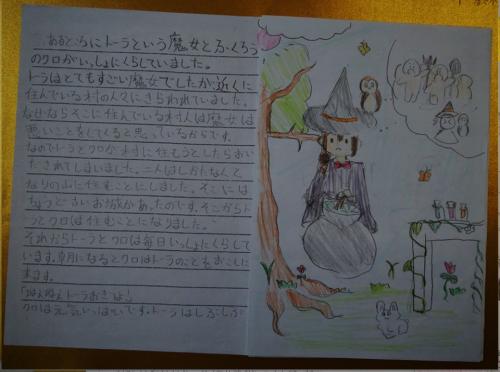 あるところにトーラという魔女とふくろう
のクロがいっしょにくらしていました。
トーラはとてもすごい魔女でしたが、近くに
住んでいる村の人々にきらわれていました。
なぜならそこに住んでいる村人は魔女は
悪いことをしてくると思っているからです。
なのでトーラとクロが村に住もうとしたらおい
だされてしまいました。二人はしかたなくと
なりの山に住むことにしました。そこには
ちょうど古いお城があったのです。そこからト
ーラとクロは住むことになりました。
それからトーラとクロは毎日いっしょにくらして
います。朝になるとクロはトーラのことをおこしに
きます。
「ねえねえトーラおきてよ!」
クロは元気いっぱいです。トーラはしぶしぶ